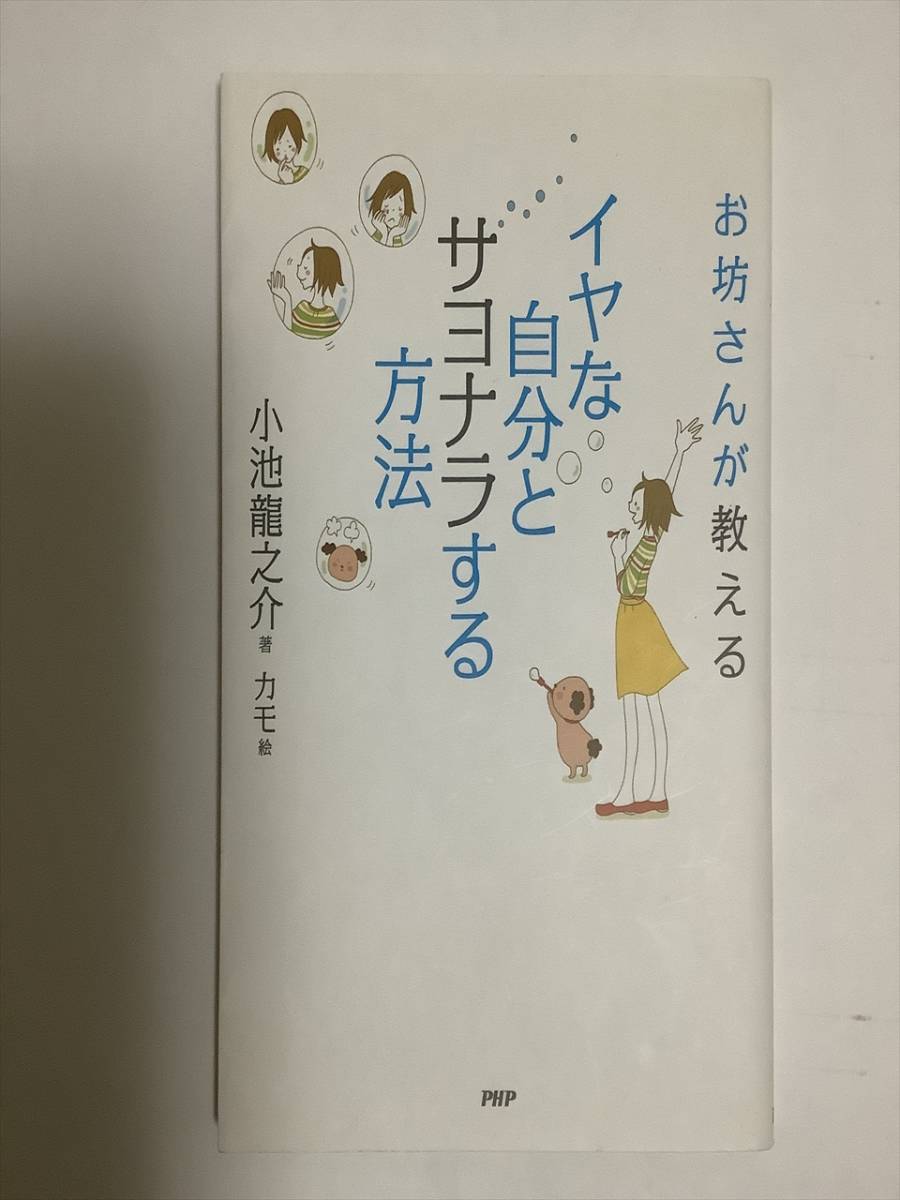 お坊さんが教える
イヤな
自分と
サヨナラする
方法
小池龍之介 著 カモ 絵
PHP